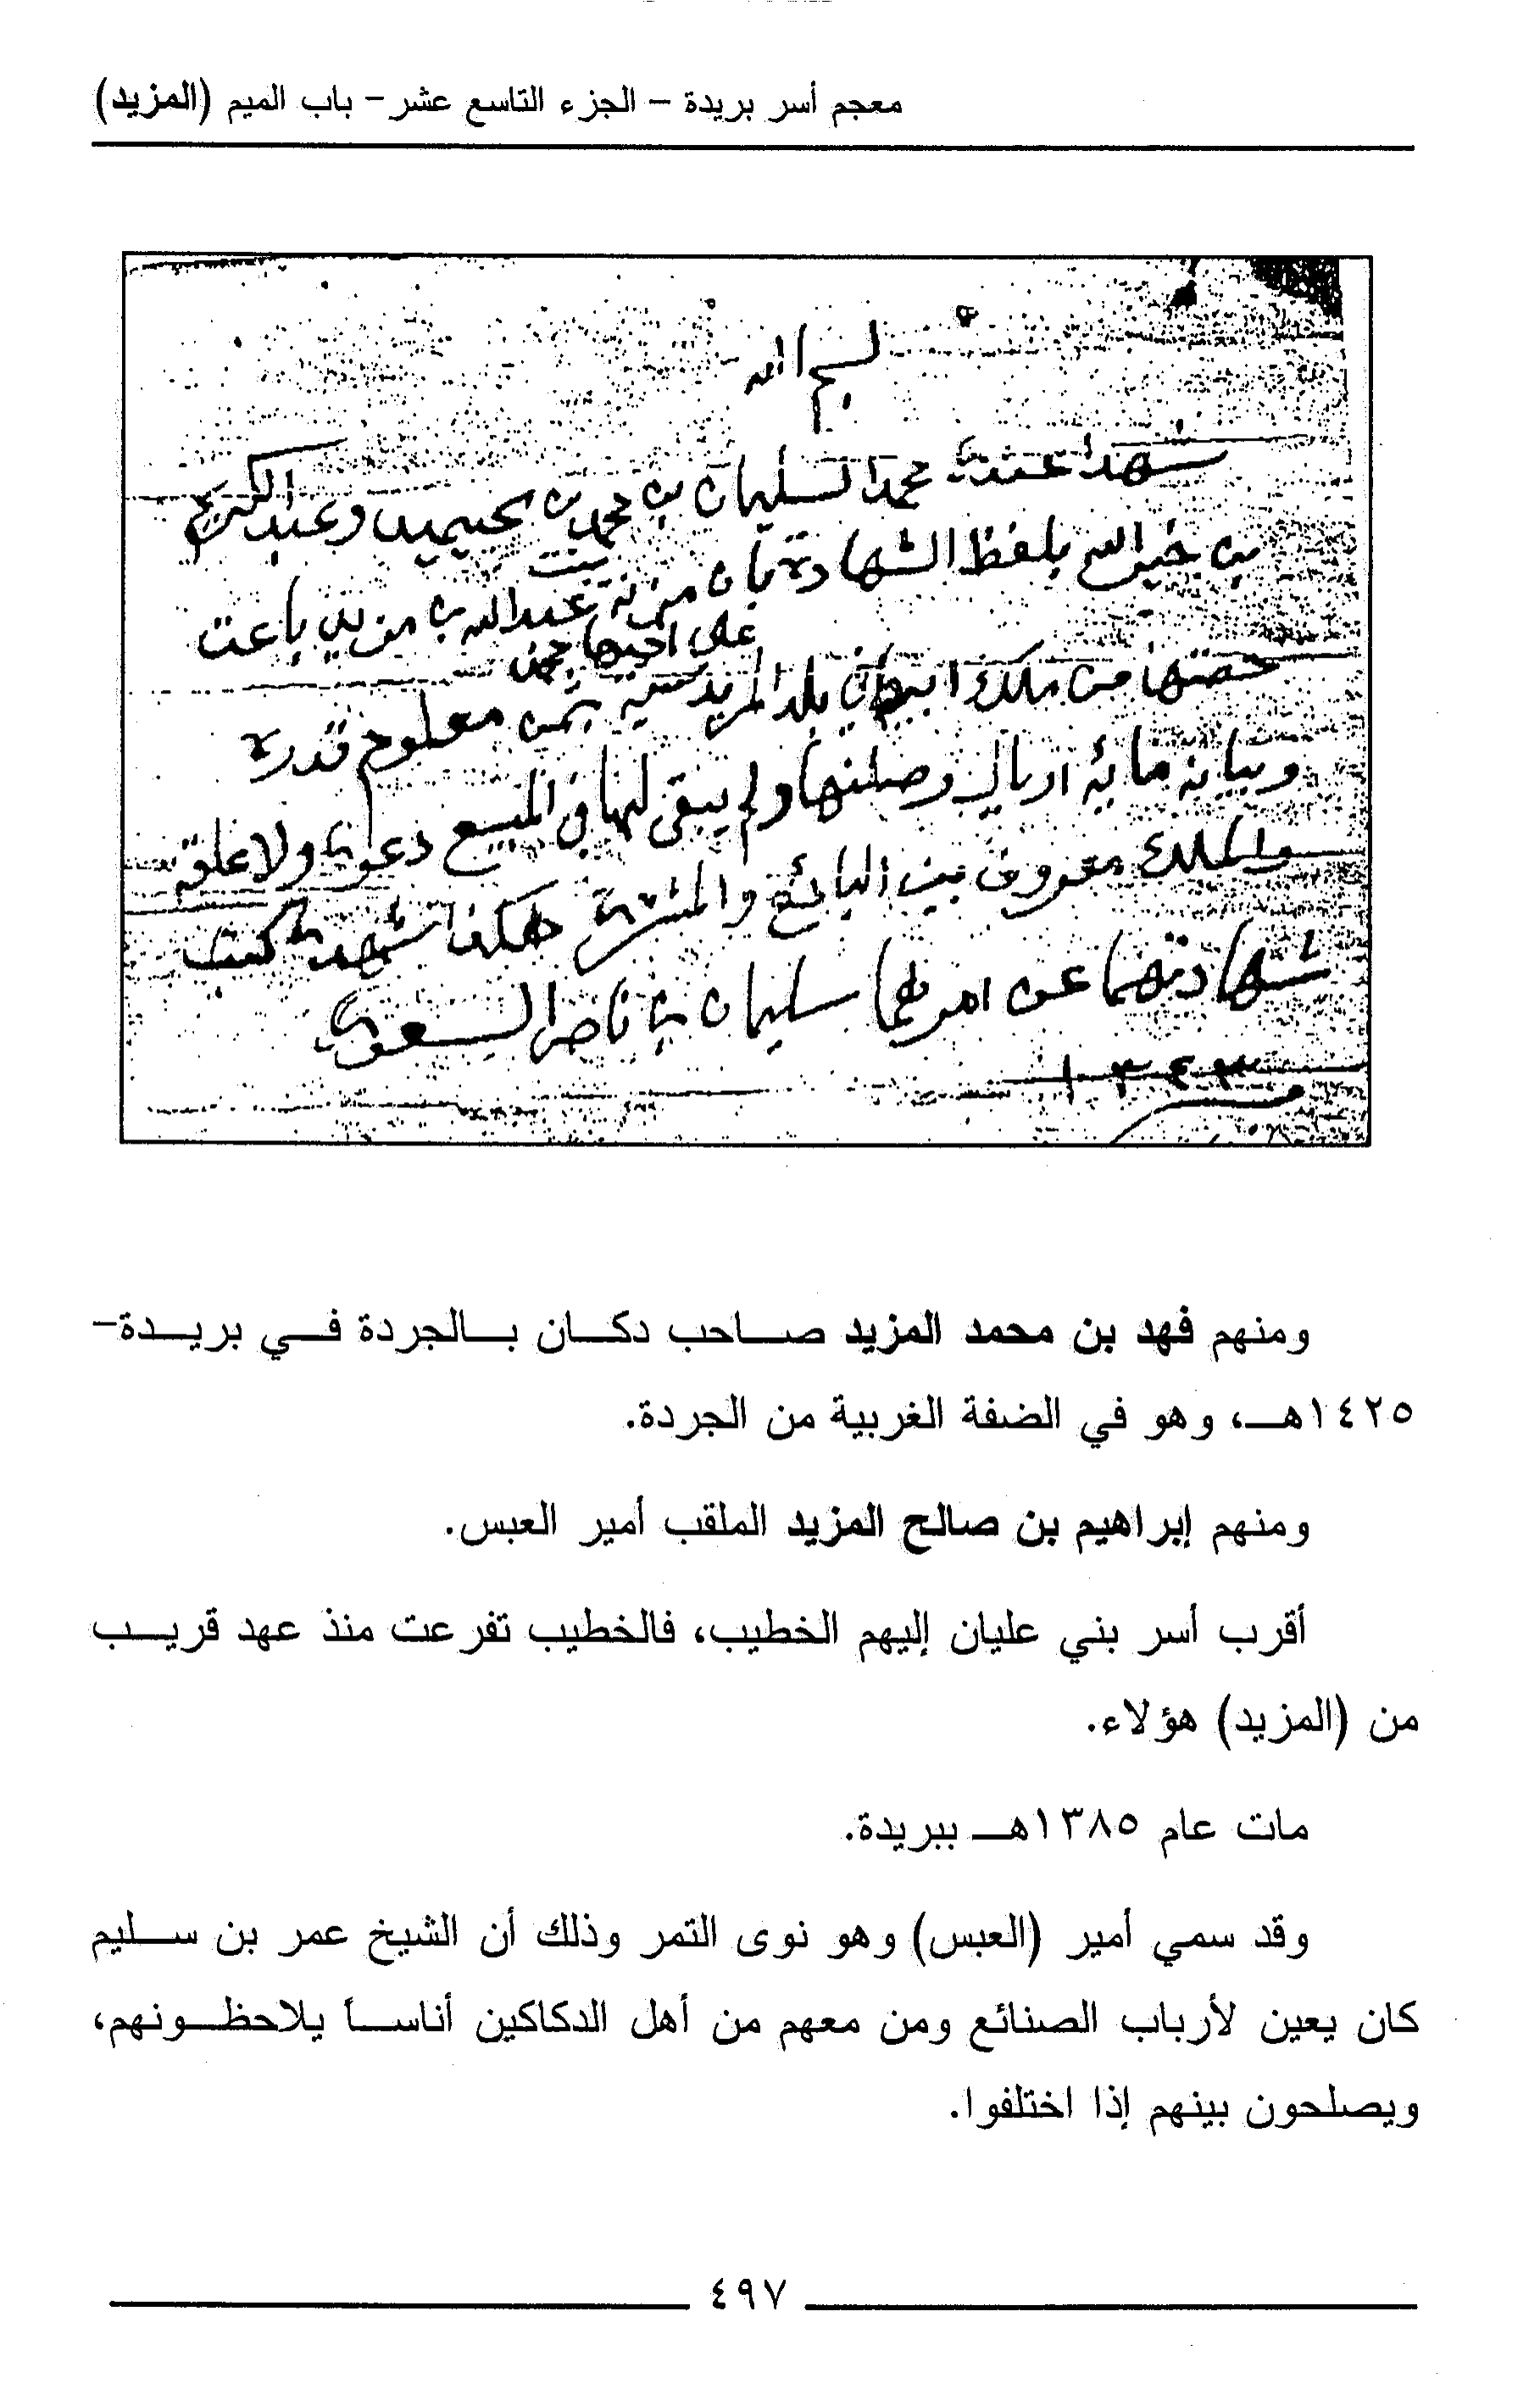 معجم أسر بريدة – الجزء التاسع عشر – باب الميم (المزيد)
بسم الله
شهدا عندي محمد السليمان بن محمد بن وعبد الكريم
بن خير الله بلفظ الشهادة بان مزنه بنت عبدالله بن مزيد باعت
على اخيها
حصتها من ملك ابيها في بلد بثمن معلوم قدره
وبيانه ماية اريال وصلنها ولم يبقى لها في المبيع دعوى ولا علقه
والملك معروف بين البائع والمشتري هكذا شهدى كتب
شهادتهما عن امرهما سليمان بن ناصر السعوي
١٣٤٣
ومنهم فهد بن محمد المزيد صاحب دكان بالجردة في بريدة–
١٤٢٥هـ، وهو في الضفة الغربية من الجردة.
ومنهم إبراهيم بن صالح المزيد الملقب أمير العبس.
أقرب أسر بني عليان إليهم الخطيب، فالخطيب تفرعت منذ عهد قريب
من (المزيد) هؤلاء.
مات عام ١٣٨٥هـ ببريدة.
وقد سمي أمير (العبس) وهو نوى التمر وذلك أن الشيخ عمر بن سليم
كان يعين لأرباب الصنائع ومن معهم من أهل الدكاكين أناساً يلاحظونهم،
ويصلحون بينهم إذا اختلفوا.
٤٩٧